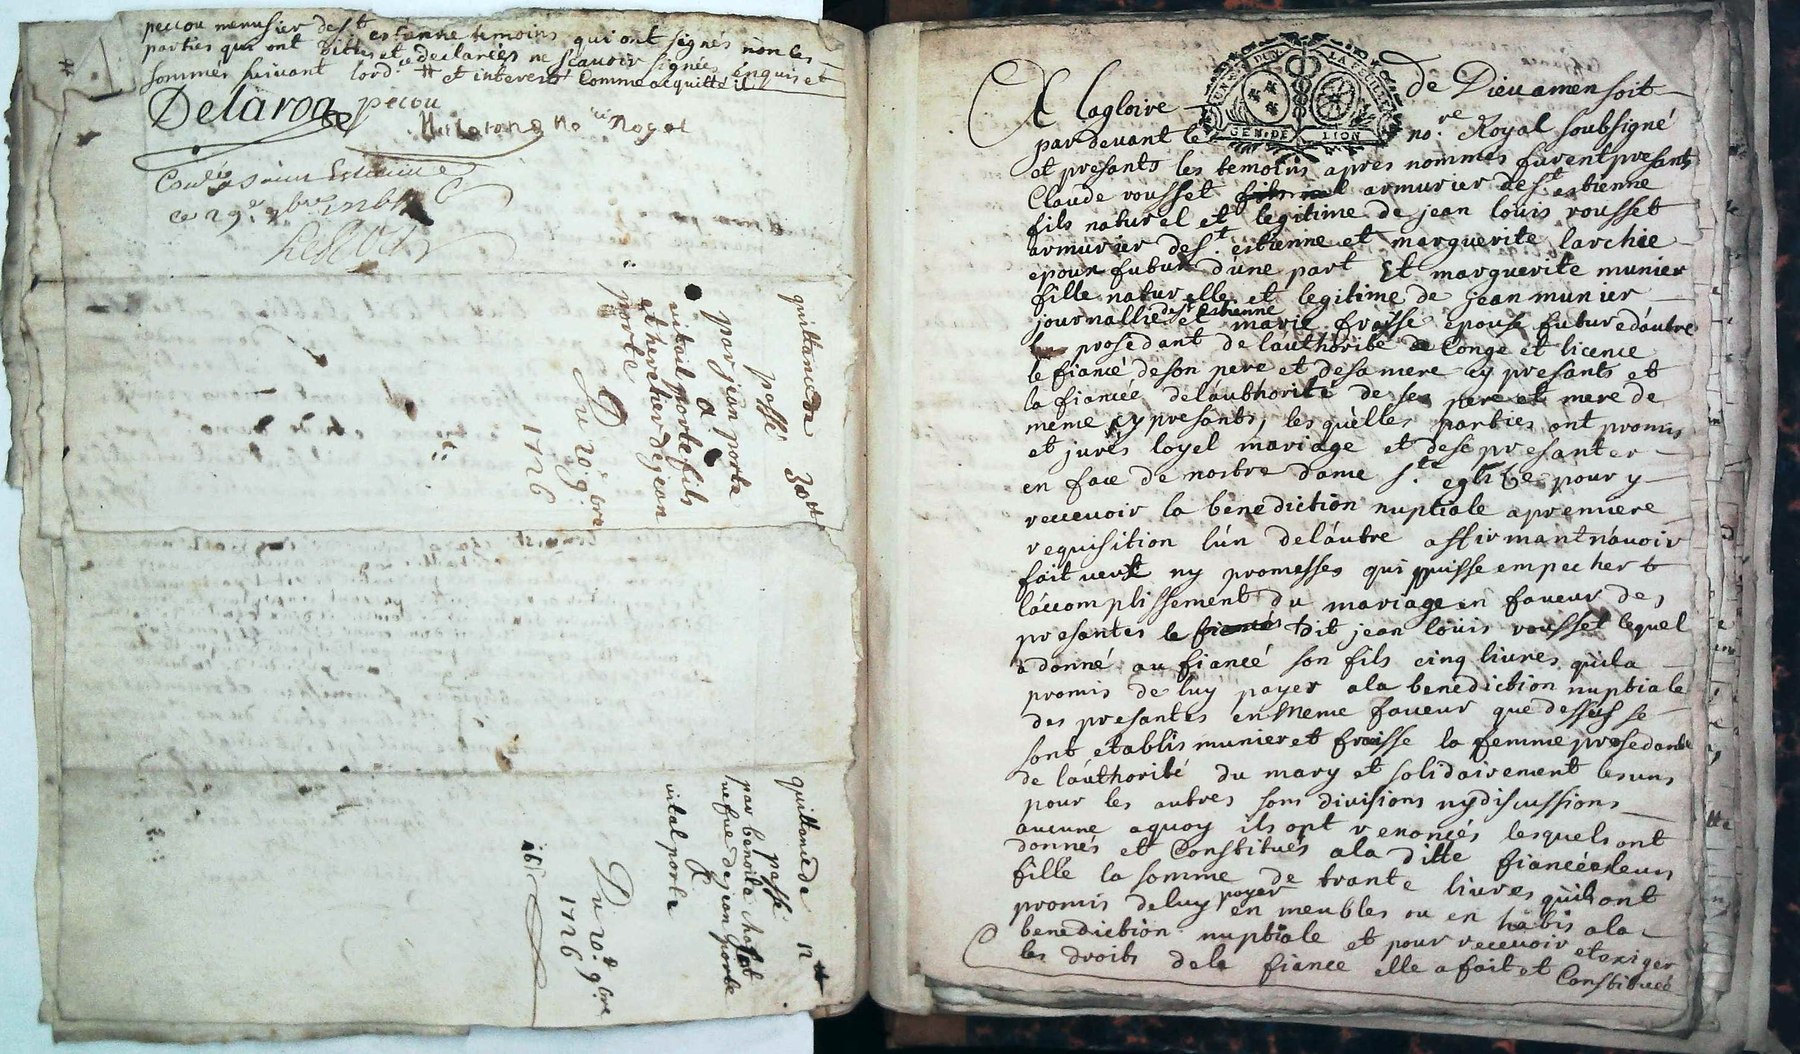 pecou menusier de st estienne temoins qui ont signés non les
parties qui ont dittes et declarées ne scavoir signée énquis et
sommés suivant lord.ce # et interest comme acquitté il
Delaroa pecou
no.re Royal
Con.lé a Saint Estienne
ce 29e 9bre
quittance de 30tt
passé
par jean porte
a
vital porte fils
et heretier de jean
porte
Du 20e 9bre
1726
quittance de 12tt
passé
par benoite
vefve de jean porte
a
vital porte
Du 20e 9bre
1726
A la gloire de Dieu amen soit
UN SEN DEN. LA FEUILLE
GEN. DE LION
par devant le no.re Royal soubsigné
et presants les temoins apres nommés furent presants
Claude rousset armurier de st estienne
fils naturel et legitime de jean louis rousset
armurier de st. estienne et marguerite larchie
epoux futur d'une part Et marguerite munier
fille naturelle et legitime de jean munier
journallie de st estienne et marie fraisse epouse future dautre
prosedant de lauthorité de Congé et licence
le fiancé de son pere et de sa mere cy presants et
la fiancée de lauthorité de ses pere et mere de
meme cy presants, les quelles parties ont promis
et jurés loyel mariage et de se presanter
en face de nostre dame ste eglise pour y
reccevoir la benediction nuptiale a premiere
requisition lún de láutre affirmant návoir
fait veut ny promesses qui puisse empecher
láccomplissement du mariage en faveur des
presantes le fiancés dit jean loüis rousset lequel
a donné au fiancé son fils cinq livres quil a
promis de luy payer a la benediction nuptiale
des presantes en meme faveur que dessus se
sont etablis munier et fraisse la femme prosedante
de láuthorité du mary et solidairement les uns
pour les autres sans divisions ny discussions
aucune a quoy ils ont renoncés lesquels ont
donnés et Constitués a la ditte fiancée leur
fille la somme de trante livres quils ont
promis de luy payer en meubles ou en habis a la
benediction nuptiale et pour recevoir et exiger
les droits de la fiancé elle a fait et Constitués